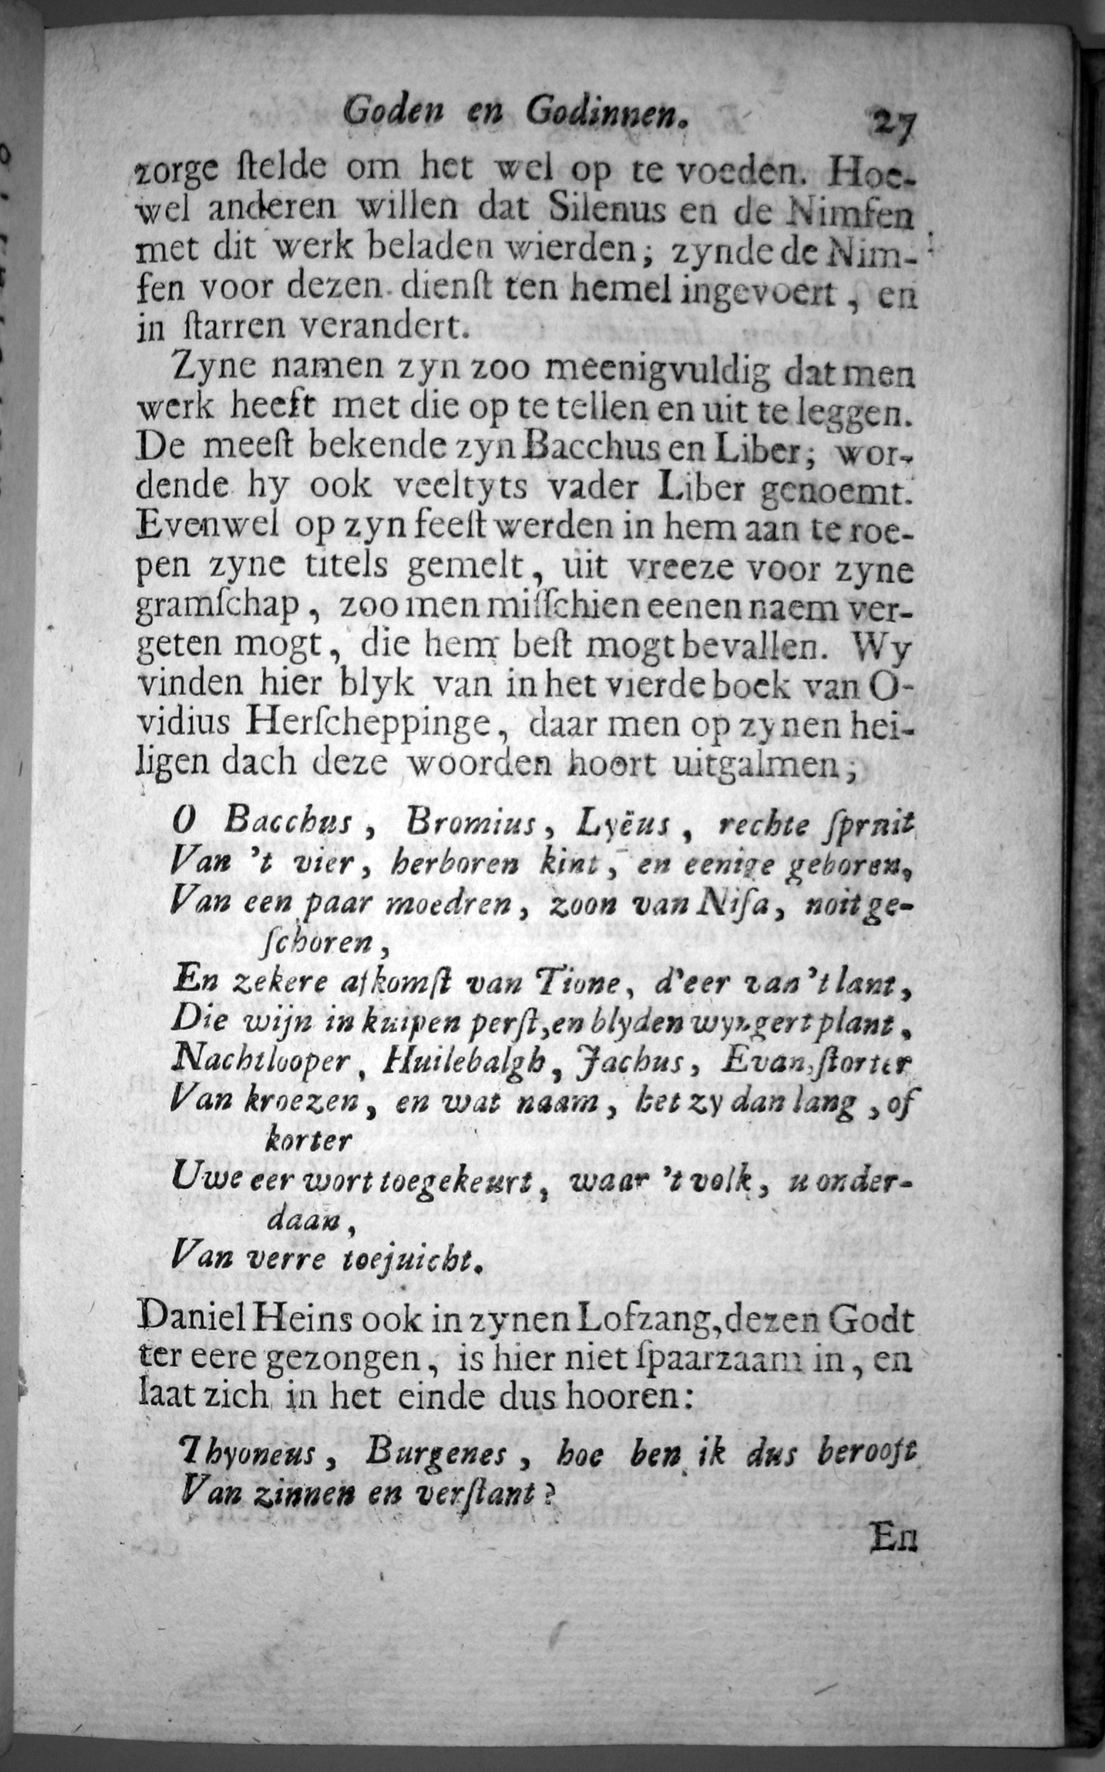 Goden en Godinnen. 27
zorge ſtelde om het wel op te voeden. Hoe-
wel anderen willen dat Silenus en de Nimfen
met dit werk beladen wierden; zynde de Nim-
fen voor dezen dienſt ten hemel ingevoert, en
in ſtarren verandert.
Zyne namen zyn zoo meenigvuldig dat men
werk heeft met die op te tellen en uit te leggen.
De meeſt bekende zyn Bacchus en Liber; wor-
dende hy ook veeltyts vader Liber genoemt.
Evenwel op zyn feeſt werden in hem aan te roe-
pen zyne titels gemelt, uit vreeze voor zyne
gramſchap, zoo men miſſchien eenen naem ver-
geten mogt, die hem beſt mogt bevallen. Wy
vinden hier blyk van in het vierde boek van O-
vidius Herſcheppinge, daar men op zynen hei-
ligen dach deze woorden hoort uitgalmen;
O Bacchus, Bromius, Lyëus, rechte ſpruit
Van 't vier, herboren kint, en eenige geboren,
Van een paar moedren, zoon van Niſa, noit ge-
ſchoren,
En zekere afkomſt van Tione, d'eer van 't lant,
Die wijn in kuipen perſt, en blyden wyngert plant,
Nachtlooper, Huilebalgh, Jachus, Evan, ſtorter
Van kroezen, en wat naam, het zy dan lang, of
korter
Uwe eer wort toegekeurt, waar 't volk, u onder-
daan,
Van verre toejuicht.
Daniel Heins ook in zynen Lofzang, dezen Godt
ter eere gezongen, is hier niet ſpaarzaam in, en
laat zich in het einde dus hooren:
Thyoneus, Burgenes, hoe ben ik dus berooft
Van zinnen en verſtant?
En